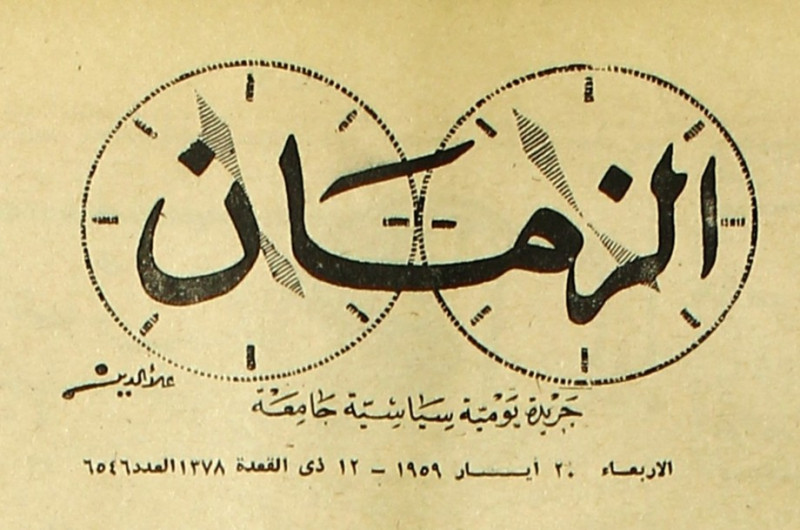 الزمان
علاء الدين
جَرِيدَة يَوْمِيَّة سِيَاسِيَّة جَامِعَة
الاربعاء ٢٠ ايـــــار ١٩٥٩ – ١٢ ذى القعدة ١٣٧٨ العدد ٦٥٤٦